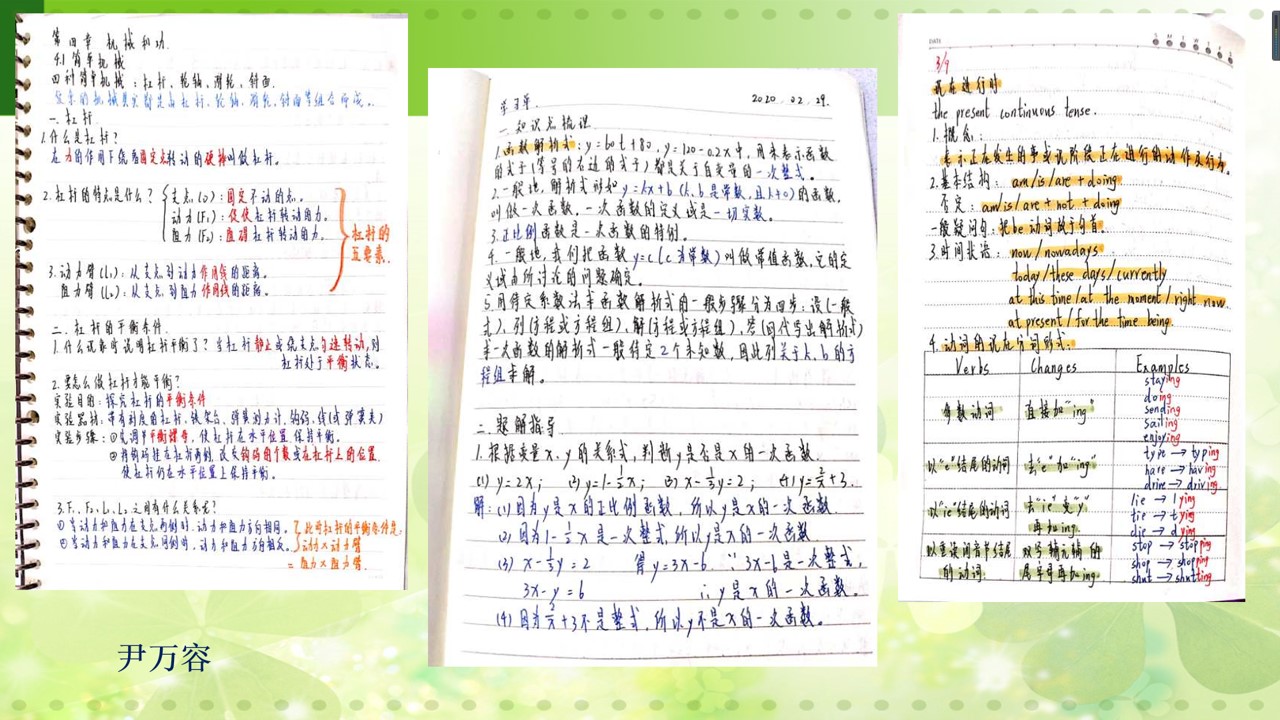 第四章 机械和功
4.1 简单机械
四种简单机械：杠杆、轮轴、滑轮、斜面.
复杂的机械其实都是由杠杆、轮轴、滑轮、斜面等组合而成。
一. 杠杆.
1.什么是杠杆？
在力的作用下绕着固定点转动的硬棒叫做杠杆。
2.杠杆的特点是什么？
支点(O)：固定不动的点。
动力(F₁)：促使杠杆转动的力。
阻力(F₂)：阻碍杠杆转动的力。
3.动力臂(L₁)：从支点到动力作用线的距离。
阻力臂(L₂)：从支点到阻力作用线的距离。
杠杆的
五要素.
二. 杠杆的平衡条件.
1.什么现象可说明杠杆平衡了？当杠杆静止或绕支点匀速转动,则
杠杆处于平衡状态。
2.要怎么做杠杆才能平衡？
实验目的：探究杠杆的平衡条件
实验步骤：①先调节平衡螺母，使杠杆在水平位置保持平衡。
②将钩码挂在杠杆两侧，改变钩码的个数或在杠杆上的位置.
使杠杆仍在水平位置上保持平衡。
3.F₁、F₂、L₁、L₂之间有什么关系呢？
①当动力和阻力在支点两侧时，动力和阻力方向相同。
②当动力和阻力在支点同侧时，动力和阻力方向相反。
此时杠杆的平衡条件是:
动力×动力臂
=阻力×阻力臂.
尹万容
学习单.
2020.02.29.
一.知识点梳理
1.函数解析式：y=60t+80，y=120-0.2x中，用来表示函数
的关于(等号的右边的式子)都是关于自变量的一次整式。
2.一般地，解析式形如y=kx+b(k、b是常数,且k≠0)的函数,
叫做一次函数，一次函数的定义域是一切实数。
3.正比例函数是一次函数的特例。
4.一般地，我们把函数y=c(c为常数)叫做常值函数,它的定
义域由所讨论的问题确定。
5.用待定系数法求函数解析式的一般步骤分为四步：设(一般
式)，列(方程或方程组)，解(方程或方程组)，答(回代写出解析式)
求一次函数的解析式一般待定2个未知数，因此列关于k、b的方
程组求解。
二.题解指导
1.根据变量x、y的关系式，判断y是否是x的一次函数.
(1)y=2x； (2)y=1-½x； (3)x-⅓y=2； (4)y=2/x+3.
解：(1)因为y是x的正比例函数，所以y是x的一次函数.
(2)因为1-½x是一次整式,所以y是x的一次函数
(3) x-⅓y=2 得y=3x-6 ∵3x-6是一次整式,
3x-y=6 ∴y是x的一次函数。
(4)因为2/x+3不是整式，所以y不是x的一次函数。
DATE
3/9
现在进行时
the present continuous tense.
1.概念：
表示正在发生的事或现阶段正在进行的动作及行为。
2.基本结构： am/is/are + doing.
否定：am/is/are + not + doing
一般疑问句：把be动词放于句首.
3.时间状语：now/nowadays
today/these days/currently
at this time/at the moment/right now.
at present/for the time being.
4.动词的现在分词形式：
Verbs Changes Examples
多数动词 直接加"ing" staying
doing
sending
sailing
enjoying
以"e"结尾的动词 去"e"加"ing" type → typing
have → having
drive → driving
以"ie"结尾的动词 去"ie"变"y"再加ing lie → lying
tie → tying
die → dying
以重读闭音节结尾的动词 双写辅元辅的尾字母再加ing stop → stopping
shop → shopping
shut → shutting